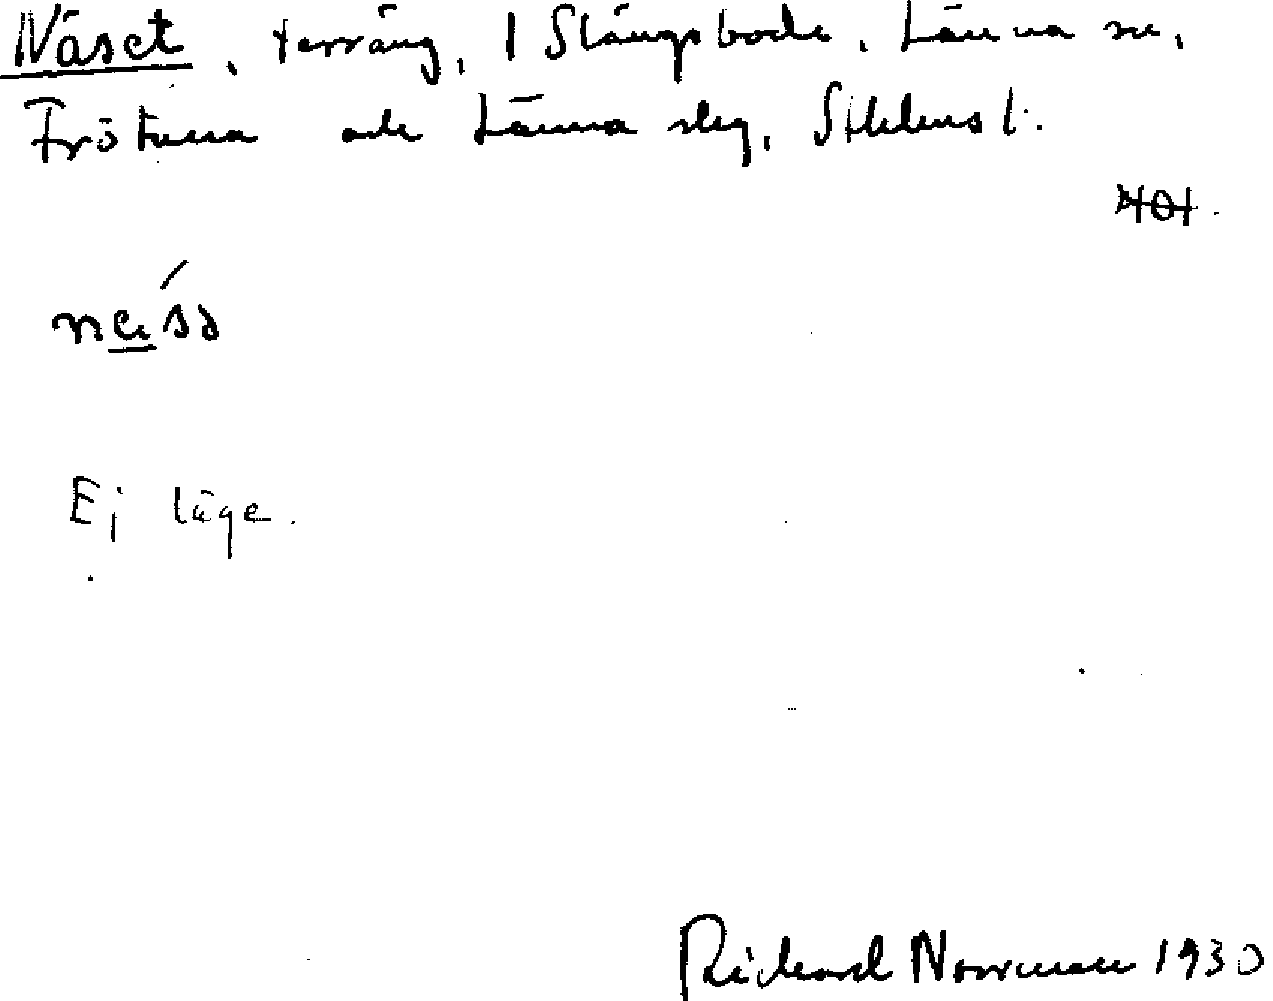 Näset, terräng, 1 Slängsboda, Länna sn,
Frötuna och Länna skg, Sthlms l.
Ej läge.
Richard Norrman 1930